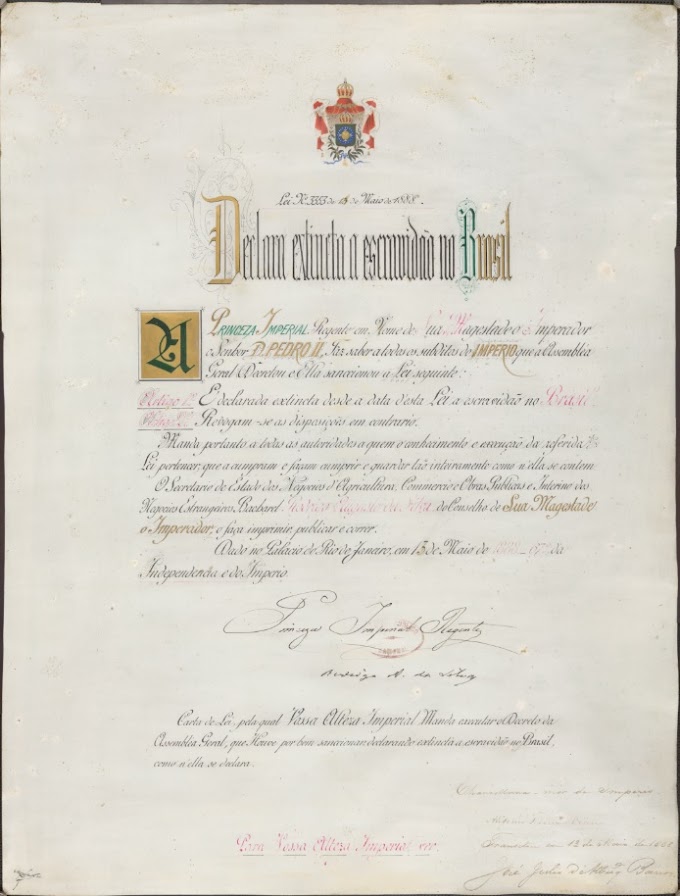 Lei Nº 3353 de 13 de Maio de 1888.
Declara extincta a escravidão no Brasil
A PRINCEZA IMPERIAL Regente em Nome de Sua Magestade o Imperador
o Senhor D. PEDRO II, Faz saber a todos os subditos do IMPERIO que a Assembléa
Geral Decretou e Ella sanccionou a Lei seguinte:
Artigo 1º É declarada extincta desde a data d'esta Lei a escravidão no Brasil.
Artigo 2º Revogam-se as disposições em contrario.
Manda portanto a todas as autoridades a quem o conhecimento e execução da referida
Lei pertencer, que a cumpram e façam cumprir e guardar tão inteiramente como n'ella se contem
O Secretario de Estado dos Negocios d'Agricultura, Commercio e Obras Publicas e Interino dos
Negocios Estrangeiros, Bacharel Rodrigo Augusto da Silva, do Conselho de Sua Magestade
o Imperador, o faça imprimir, publicar e correr.
Dado no Palacio do Rio de Janeiro, em 13 de Maio de 1888 - 67º da
Independencia e do Imperio.
Princeza Imperial Regente
Rodrigo A. da Silva
Carta de Lei, pela qual Vossa Alteza Imperial Manda executar o Decreto da
Assembléa Geral, que Houve por bem sanccionar, declarando extincta a escravidão no Brasil,
como n'ella se declara.
Chancellaria-mór do Imperio
Transitou em 13 de Maio de 1888
José Julio
Para Vossa Alteza Imperial ver.